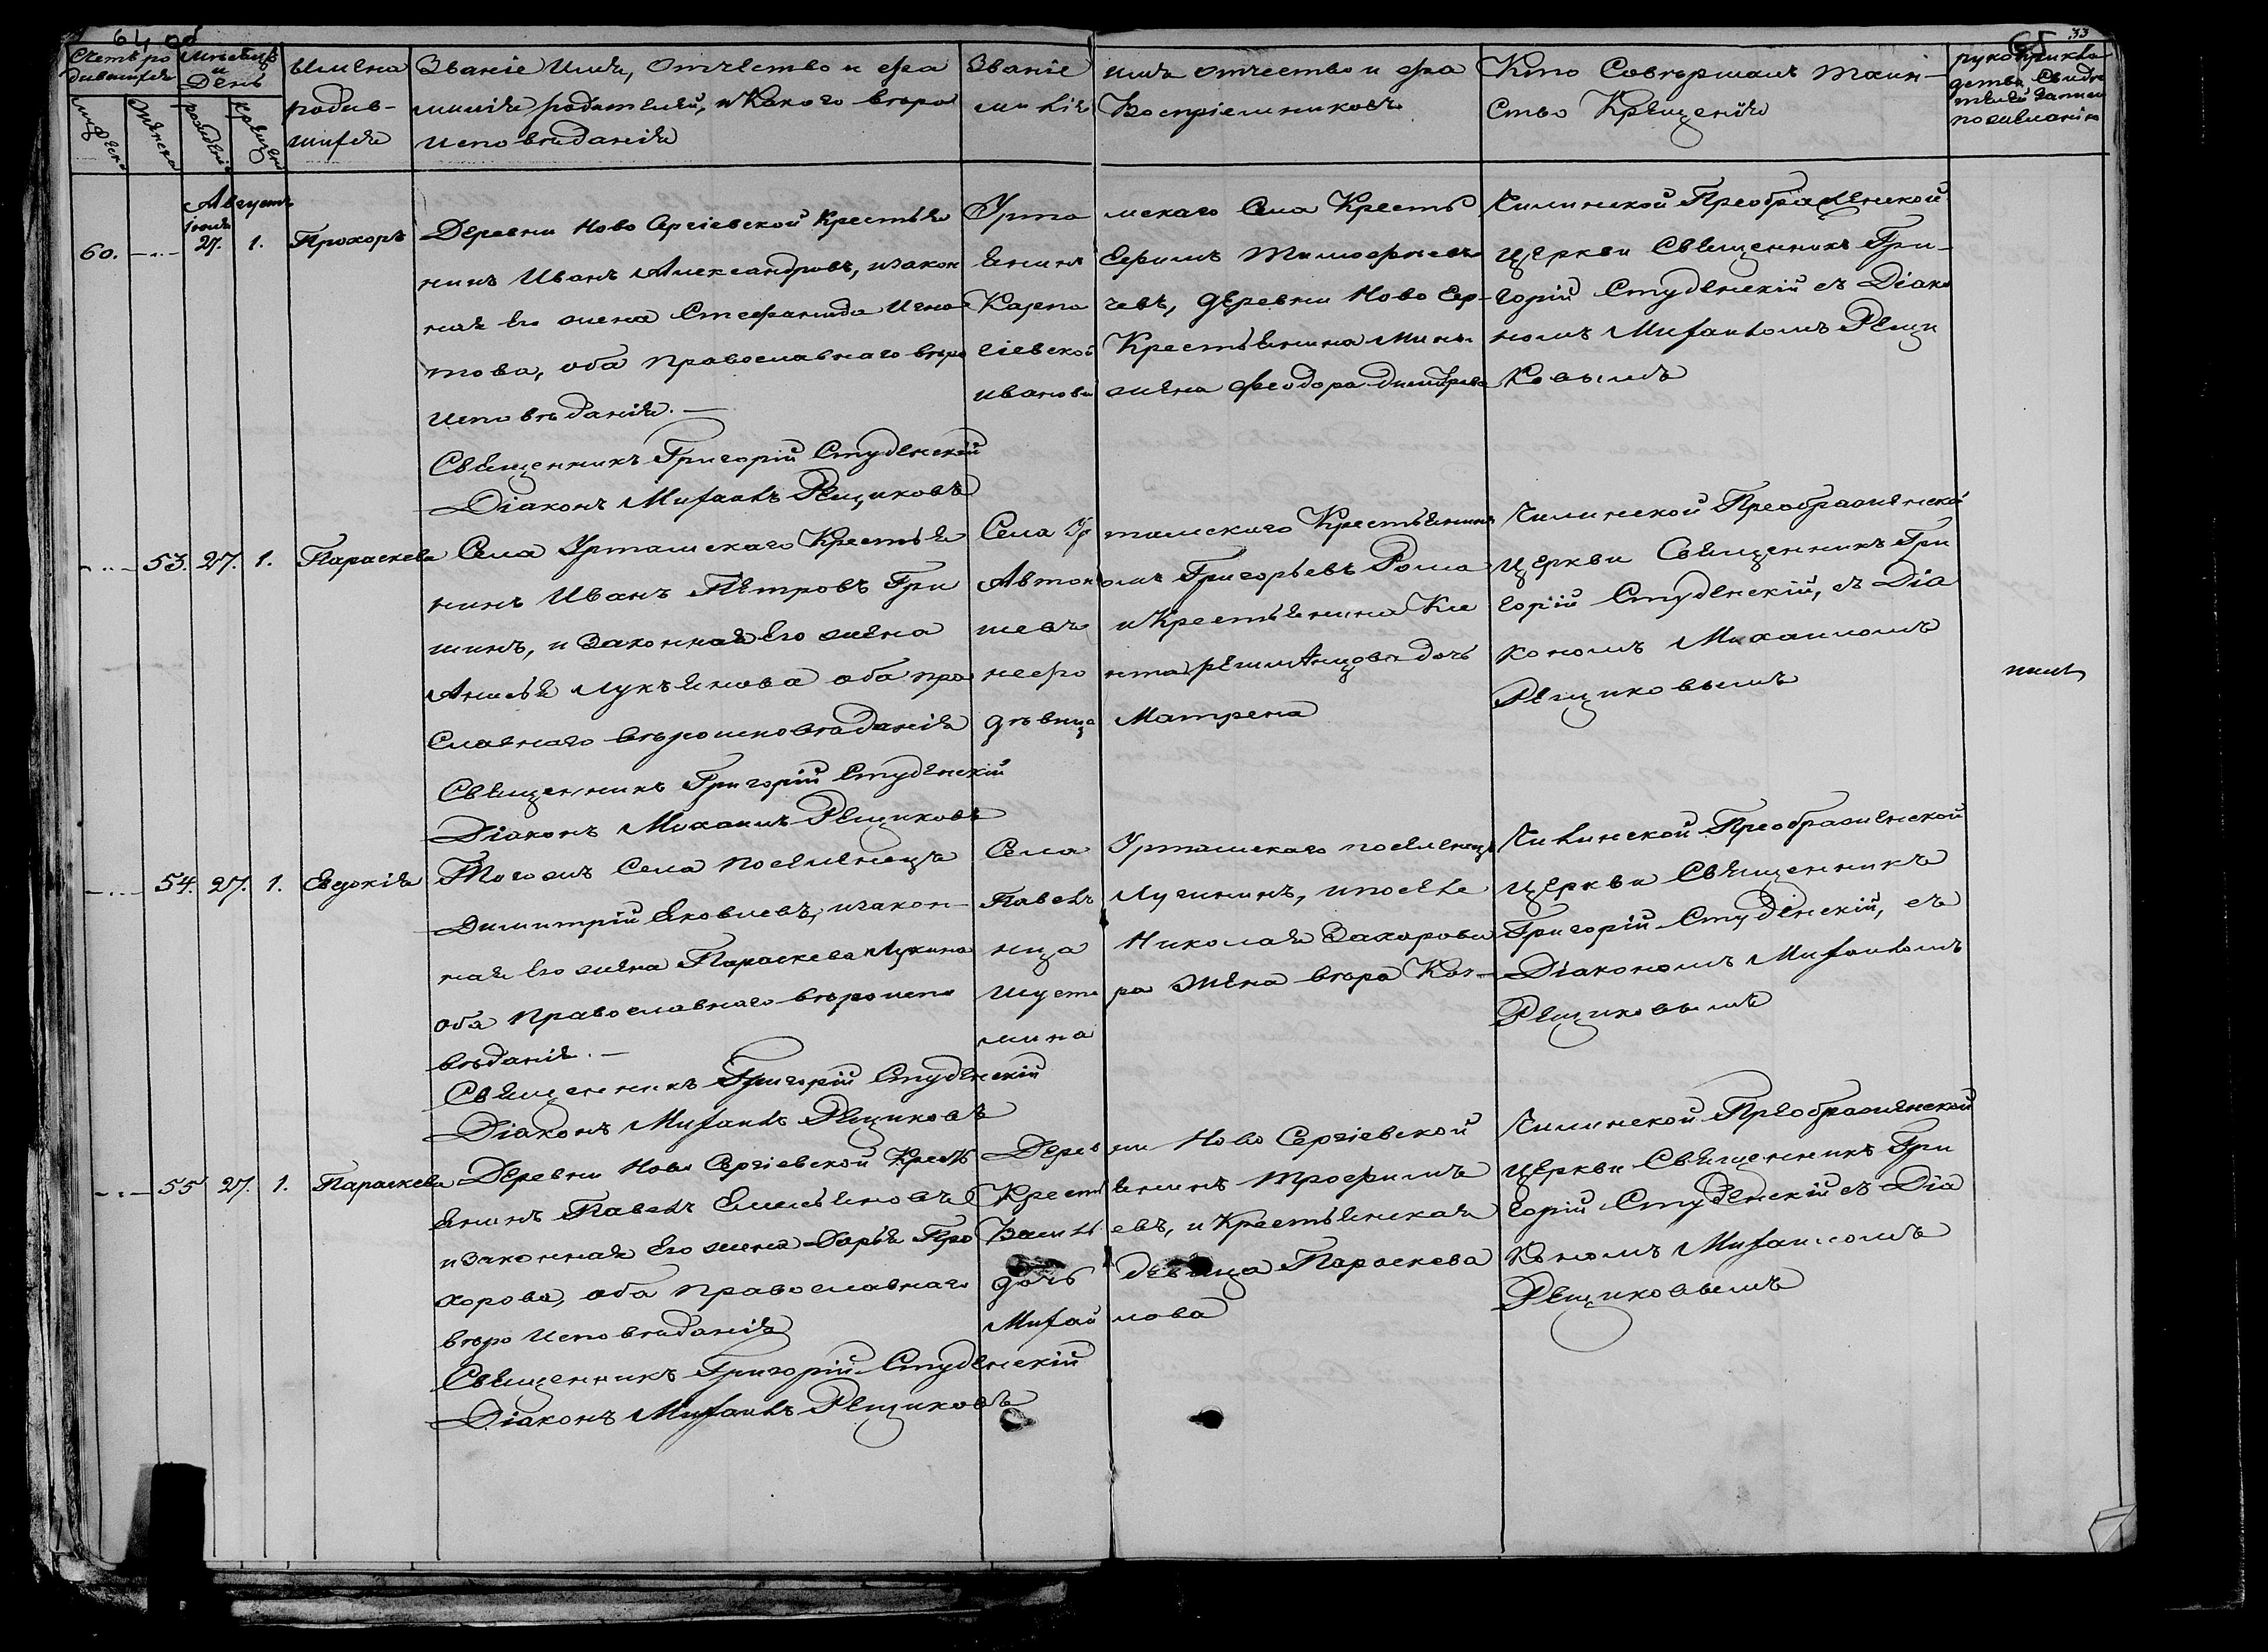 64 об
65
33
Счетъ ро
дившихся
Мѣсяцъ
и
День
Имена
родив-
шихся
Званіе Имя, Отчество и фа
милія родителей, и Какого вѣро
исповѣданія
Званіе имя отчество и фа
милія Воспріемниковъ
Кто Совершалъ таин-
Ство Крещенія
рукоприкла
детва Свидѣ
телей записи
по желанію
мужеска
женска
рожденія
крещенія
Августъ
іюля
60. 27. 1. Прохоръ
Деревни Ново Сергіевской Крестья
нинъ Иванъ Александровъ, изакон
ная Его жена Стефанида Игна
това, оба православнаго вѣро
исповѣданія. —
Священникъ Григорій Студенскій
Діаконъ Михаилъ Рещиковъ
Урта мскаго Села Кресть
янинъ Ефимъ Тимофѣевъ
Карпо чевъ, деревни Ново Сер-
гіевской Крестьянина Минь
иванова жена Феодора Димитрева
Чилинской Преображенской
церкви Священникъ Гри-
горій Студенскій съ Діако
номъ Михаиломъ Рещи
Ковымъ
53. 27. 1. Параскева
Села Уртамскаго Крестья
нинъ Иванъ Петровъ Гри
шинъ, и Законная Его жена
Анисья Лукьянова оба пра
Славнаго вѣроисповѣданія
Священникъ Григорій Студенскій
Діаконъ Михаилъ Рещиковъ
Села Ур тамскаго Крестьянинъ
Автон омъ Григорьевъ Рома
шевъ и Крестьянина Ксе
нефо нта дочь
дѣвица Матрена
Чилинской Преображенской
церкви Священникъ Гри
горій Студенскій, съ Діа
кономъ Михаиломъ
Рещиковымъ
54. 27. 1. Евдокія
Тогожъ Села поселенецъ
Димитрій Яковлевъ, изакон-
ная Его жена Параскева Лукина
оба Православнаго вѣроиспо
вѣданія. —
Священникъ Григорій Студенскій
Діаконъ Михаилъ Рещиковъ
Села Уртамскаго поселенецъ
Павелъ Лугининъ, ипоселе
нца Николая Захарова
Шуст ра жена вѣра Коз-
мина
Чилинской Преображенской
церкви Священникъ
Григорій Студенскій, съ
Діакономъ Михаиломъ
Рещиковымъ
55 27. 1. Параскева
Деревни Ново Сергіевской Кресть
янинъ Павелъ Емельяновъ
и законная Его жена Дарья Про
хорова, оба православнаго
вѣро Исповѣданія
Священникъ Григорій Студенскій
Діаконъ Михаилъ Рещиковъ
Дерев ни Ново Сергіевской
Кресть янинъ Трофимъ
Васил евъ, и Крестьянская
дочь дѣвица Параскева
Михаи лова
Чилинской Преображенской
церкви Священникъ Гри
горій Студенскій съ Діа
кономъ Михаиломъ
Рещиковымъ